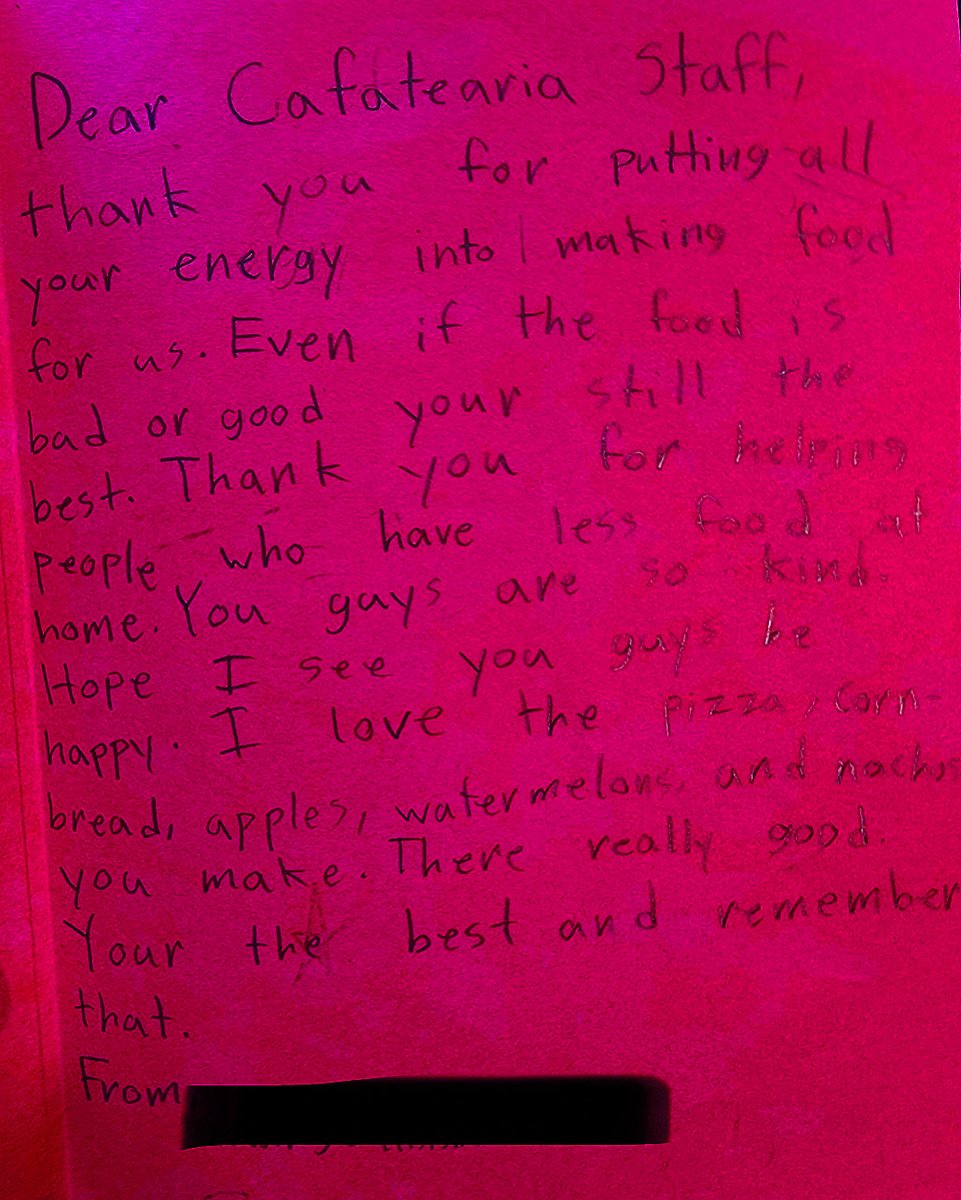 Dear Cafatearia Staff,
thank you for putting all
your energy into making food
for us. Even if the food is
bad or good your still the
best. Thank you for helping
people who have less food at
home. You guys are so kind.
Hope I see you guys be
happy. I love the pizza, corn-
bread, apples, watermelons, and nachos
you make. There really good.
Your the best and remember
that.
From